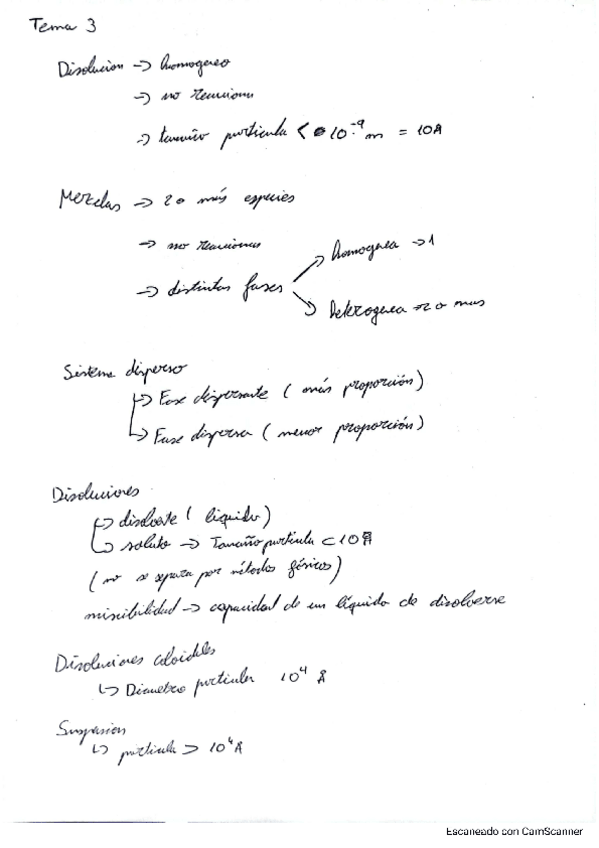 Tema 3
Disolucion → homogeneo
→ no reacciona
→ tamaño particula < 10⁻⁹ m = 10Å
Mezclas → 2 o más especies
→ no reaccionan
→ distintas fases
homogenea → 1
heterogenea → 2 o mas
Sistema disperso
↳ Fase dispersante ( más proporción)
↳ Fase dispersa ( menor proporción)
Disoluciones
↳ disolvente ( líquido)
↳ soluto → Tamaño particula < 10 Å
( no se separa por métodos físicos)
miscibilidad → capacidad de un líquido de disolverse
Disoluciones coloidales
↳ Diametro particular 10⁴ Å
Suspension
↳ particula > 10⁴ Å
Escaneado con CamScanner